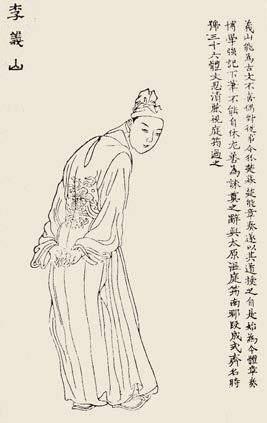 義山能為古文不喜偶對從事令狐楚幕楚能章奏遂以其道授之自是始為今體章奏
博學強記下筆不能自休尤善為誄奠之辭與太原溫庭筠南郡段成式齊名時
號三十六體文思清麗視庭筠過之
李義山